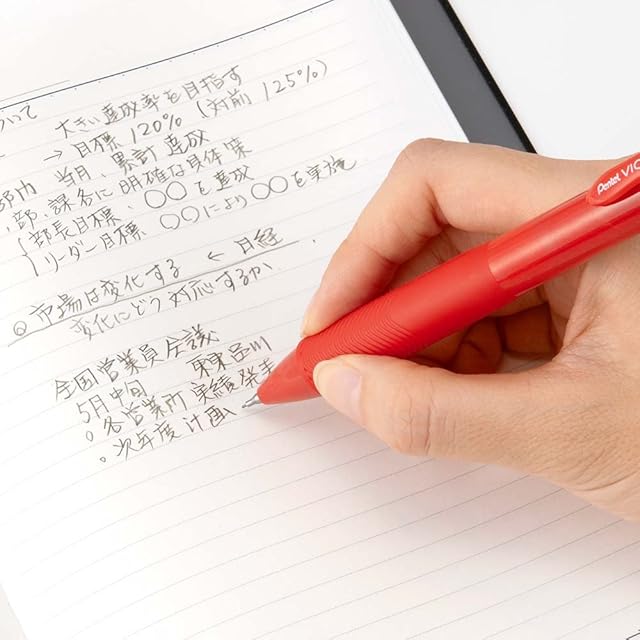 ついて
大きい達成率を目指す
→ 目標 120% (対前 125%)
部内 当月、累計 達成
、部、課名に 明確な具体策
部長目標、○○を達成
リーダー目標 ○○により ○○を実施
◎ 市場は変化する ← 日経
変化にどう対応するか
全国営業員会議
5月中旬 東京品川
○ 各営業所 実績発表
○ 次年度 計画
Pentel VIC